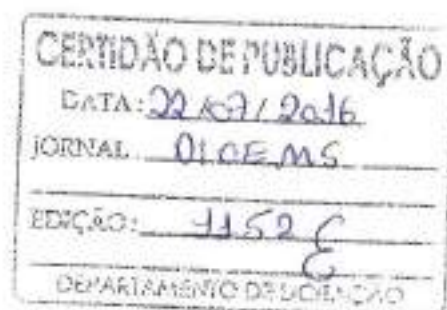 CERTIDÃO DE PUBLICAÇÃO
DATA: 22/07/2016
JORNAL
EDIÇÃO: 1152
DEPARTAMENTO DE LICITAÇÃO